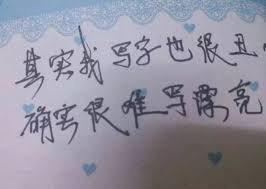 其实我写字也很丑
确实很难写漂亮